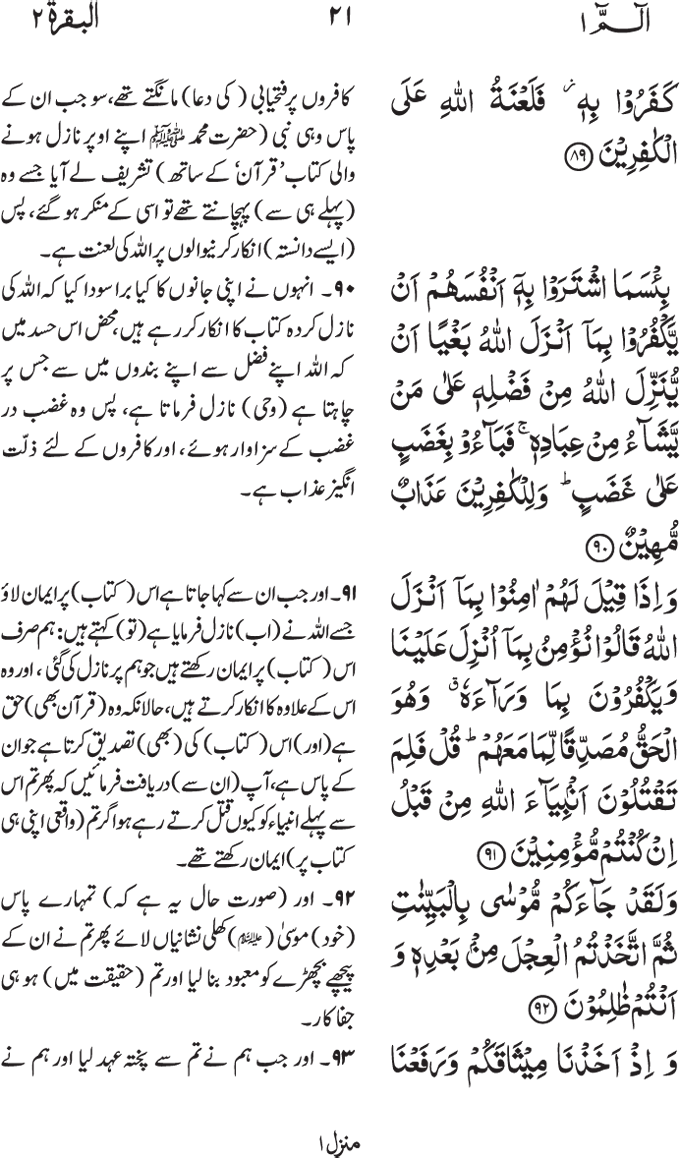 الٓمّٓ ١
٢١
البقرة ٢
كَفَرُوْا بِهٖ٘ فَلَعْنَةُ اللهِ عَلَى
الْكٰفِرِيْنَ ﴿٨٩﴾
بِئْسَمَا اشْتَرَوْا بِهٖۤ اَنْفُسَهُمْ اَنْ
يَّكْفُرُوْا بِمَاۤ اَنْزَلَ اللهُ بَغْيًا اَنْ
يُّنَزِّلَ اللهُ مِنْ فَضْلِهٖ عَلٰى مَنْ
يَّشَآءُ مِنْ عِبَادِهٖ ۚ فَبَآءُوْ بِغَضَبٍ
عَلٰى غَضَبٍ ؕ وَلِلْكٰفِرِيْنَ عَذَابٌ
مُّهِيْنٌ ﴿٩٠﴾
وَاِذَا قِيْلَ لَهُمْ اٰمِنُوْا بِمَاۤ اَنْزَلَ
اللهُ قَالُوْا نُؤْمِنُ بِمَاۤ اُنْزِلَ عَلَيْنَا
وَيَكْفُرُوْنَ بِمَا وَرَآءَهٗ ۗ وَهُوَ
الْحَقُّ مُصَدِّقًا لِّمَا مَعَهُمْ ؕ قُلْ فَلِمَ
تَقْتُلُوْنَ اَنْۢبِيَآءَ اللهِ مِنْ قَبْلُ
اِنْ كُنْتُمْ مُّؤْمِنِيْنَ ﴿٩١﴾
وَلَقَدْ جَآءَكُمْ مُّوْسٰى بِالْبَيِّنٰتِ
ثُمَّ اتَّخَذْتُمُ الْعِجْلَ مِنْۢ بَعْدِهٖ وَ
اَنْتُمْ ظٰلِمُوْنَ ﴿٩٢﴾
وَ اِذْ اَخَذْنَا مِيْثَاقَكُمْ وَرَفَعْنَا
کافروں پر فتحیابی (کی دعا) مانگتے تھے، سو جب ان کے
پاس وہی نبی (حضرت محمد ﷺ اپنے اوپر نازل ہونے
والی کتاب ’قرآن‘ کے ساتھ) تشریف لے آیا جسے وہ
(پہلے ہی سے) پہچانتے تھے تو اسی کے منکر ہو گئے، پس
(ایسے دانستہ) انکار کرنیوالوں پر اللہ کی لعنت ہے۔
۹۰۔ انہوں نے اپنی جانوں کا کیا برا سودا کیا کہ اللہ کی
نازل کردہ کتاب کا انکار کر رہے ہیں، محض اس حسد میں
کہ اللہ اپنے فضل سے اپنے بندوں میں سے جس پر
چاہتا ہے (وحی) نازل فرماتا ہے، پس وہ غضب در
غضب کے سزاوار ہوئے، اور کافروں کے لئے ذلّت
انگیز عذاب ہے۔
۹۱۔ اور جب ان سے کہا جاتا ہے اس (کتاب) پر ایمان لاؤ
جسے اللہ نے (اب) نازل فرمایا ہے (تو) کہتے ہیں: ہم صرف
اس (کتاب) پر ایمان رکھتے ہیں جو ہم پر نازل کی گئی، اور وہ
اس کے علاوہ کا انکار کرتے ہیں، حالانکہ وہ (قرآن بھی) حق
ہے (اور) اس (کتاب) کی (بھی) تصدیق کرتا ہے جو ان
کے پاس ہے، آپ (ان سے) دریافت فرمائیں کہ پھر تم اس
سے پہلے انبیاء کو کیوں قتل کرتے رہے ہو اگر تم (واقعی اپنی ہی
کتاب پر) ایمان رکھتے تھے۔
۹۲۔ اور (صورت حال یہ ہے کہ) تمہارے پاس
(خود) موسیٰ (علیہ السلام) کھلی نشانیاں لائے پھر تم نے ان کے
پیچھے بچھڑے کو معبود بنا لیا اور تم (حقیقت میں) ہو ہی
جفاکار۔
۹۳۔ اور جب ہم نے تم سے پختہ عہد لیا اور ہم نے
منزل ۱